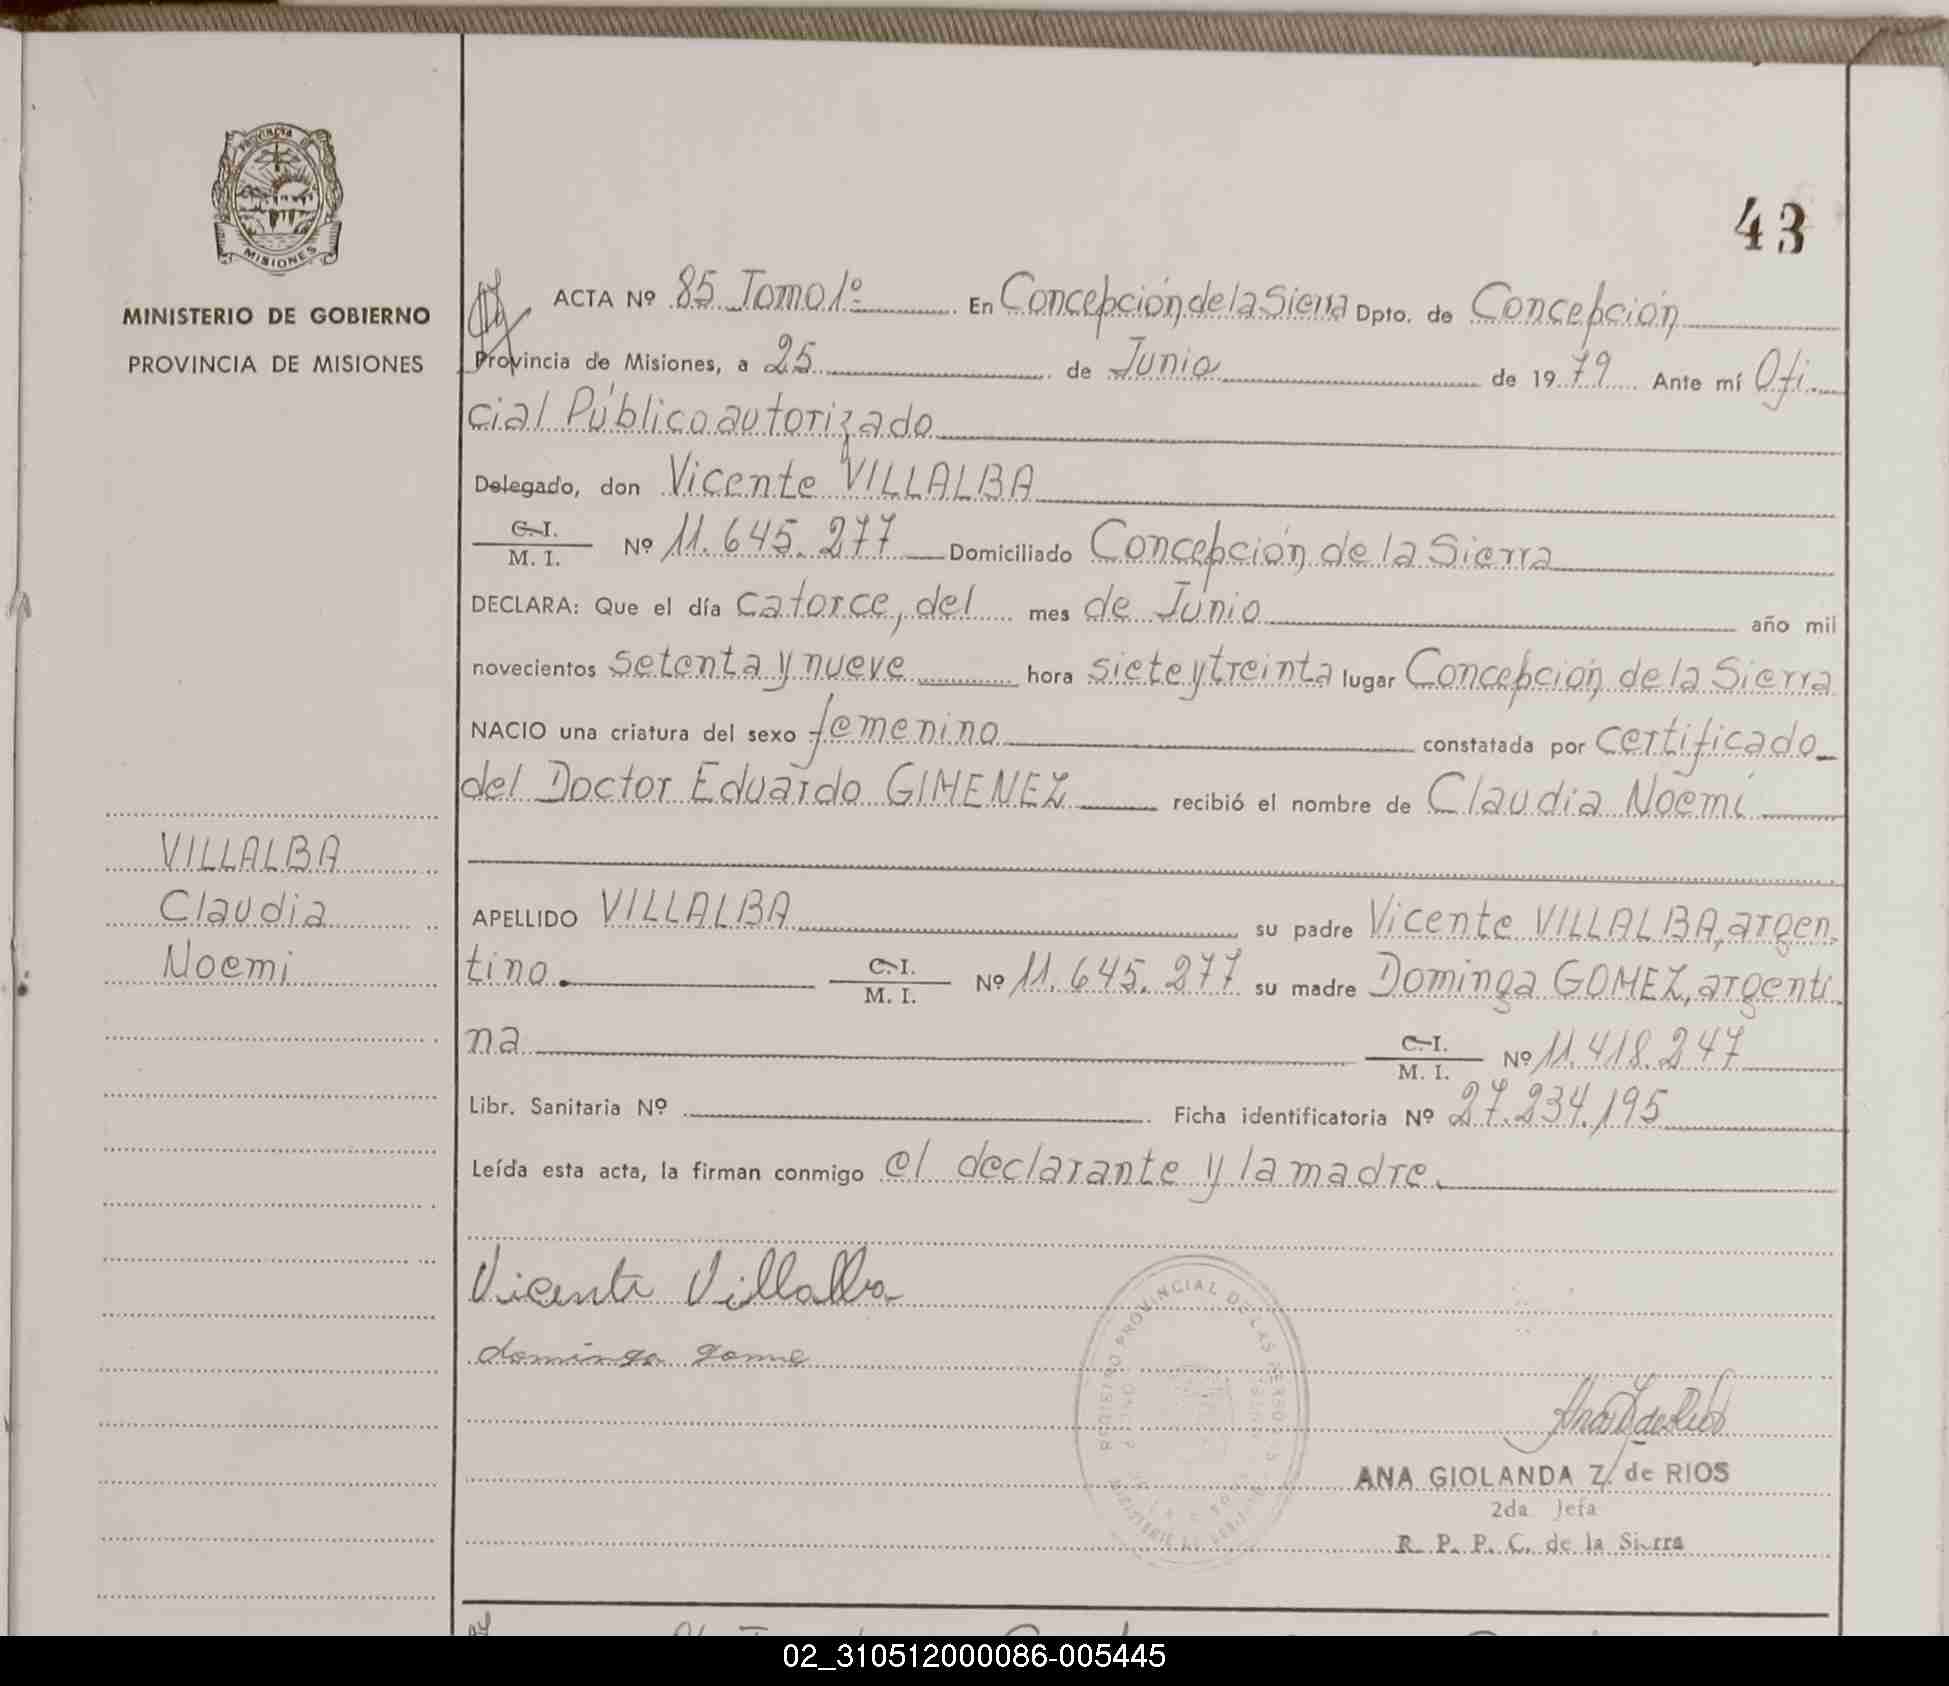 PROVINCIA DE
MISIONES
MINISTERIO DE GOBIERNO
PROVINCIA DE MISIONES
VILLALBA
Claudia
Noemi
43
ACTA Nº 85 Tomo 1º En Concepción de la Sierra Dpto. de Concepción
Provincia de Misiones, a 25 de Junio de 1979 Ante mí Ofi-
cial Público autorizado
Delegado, don Vicente VILLALBA
C. I.
M. I. Nº 11.645.277 Domiciliado Concepción de la Sierra
DECLARA: Que el día catorce, del mes de Junio año mil
novecientos setenta y nueve hora siete y treinta lugar Concepción de la Sierra
NACIO una criatura del sexo femenino constatada por certificado
del Doctor Eduardo GIMENEZ recibió el nombre de Claudia Noemí
APELLIDO VILLALBA su padre Vicente VILLALBA, argen-
tino. C. I.
M. I. Nº 11.645.277 su madre Dominga GOMEZ, argenti-
na C. I.
M. I. Nº 11.418.247
Libr. Sanitaria Nº Ficha identificatoria Nº 27.234.195
Leída esta acta, la firman conmigo el declarante y la madre.
Vicente Villalba
dominga gome
REGISTRO PROVINCIAL DE LAS PERSONAS
ANA GIOLANDA Z. de RIOS
2da. Jefa
R. P. P. C. de la Sierra
02_310512000086-005445